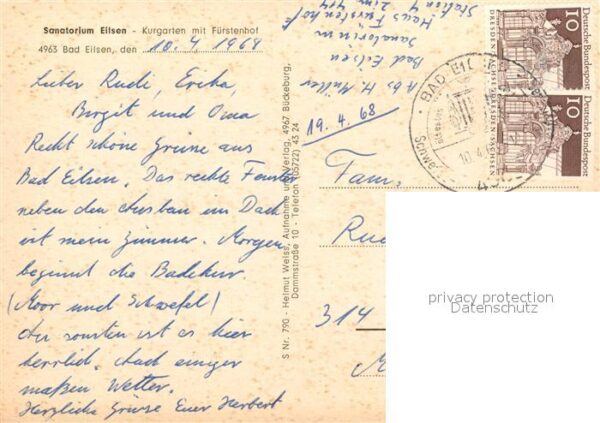 Sanatorium Eilsen - Kurgarten mit Fürstenhof
4963 Bad Eilsen, den 10.4 1968
Lieber Rudi, Erika,
Birgit und Oma
Recht schöne Grüsse aus
Bad Eilsen. Das rechte Fenster
neben den Ausbau im Dach
ist mein Zimmer. Morgen
beginnt die Badekur.
(Moor und Schwefel)
ansonsten ist es hier
herrlich. Auch einiger
maßen Wetter.
Herzliche Grüsse Euer Herbert
S Nr. 790 - Helmut Weiss, Aufnahme und Verlag, 4967 Bückeburg,
Dammstraße 10 - Telefon (05722) 45 24
Abs. H. Müller
Bad Eilsen
Sanatorium
Haus Fürstenhof
Station 4 Zim. 414
19.4.68
BAD EI
10.4.6
Deutsche Bundespost
10
DRESDEN/SACHSEN
Deutsche Bundespost
10
DRESDEN/SACHSEN
Fam
Rud
314
M
privacy protection
Datenschutz